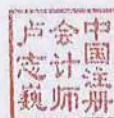 中国注册
会计师
卢志巍